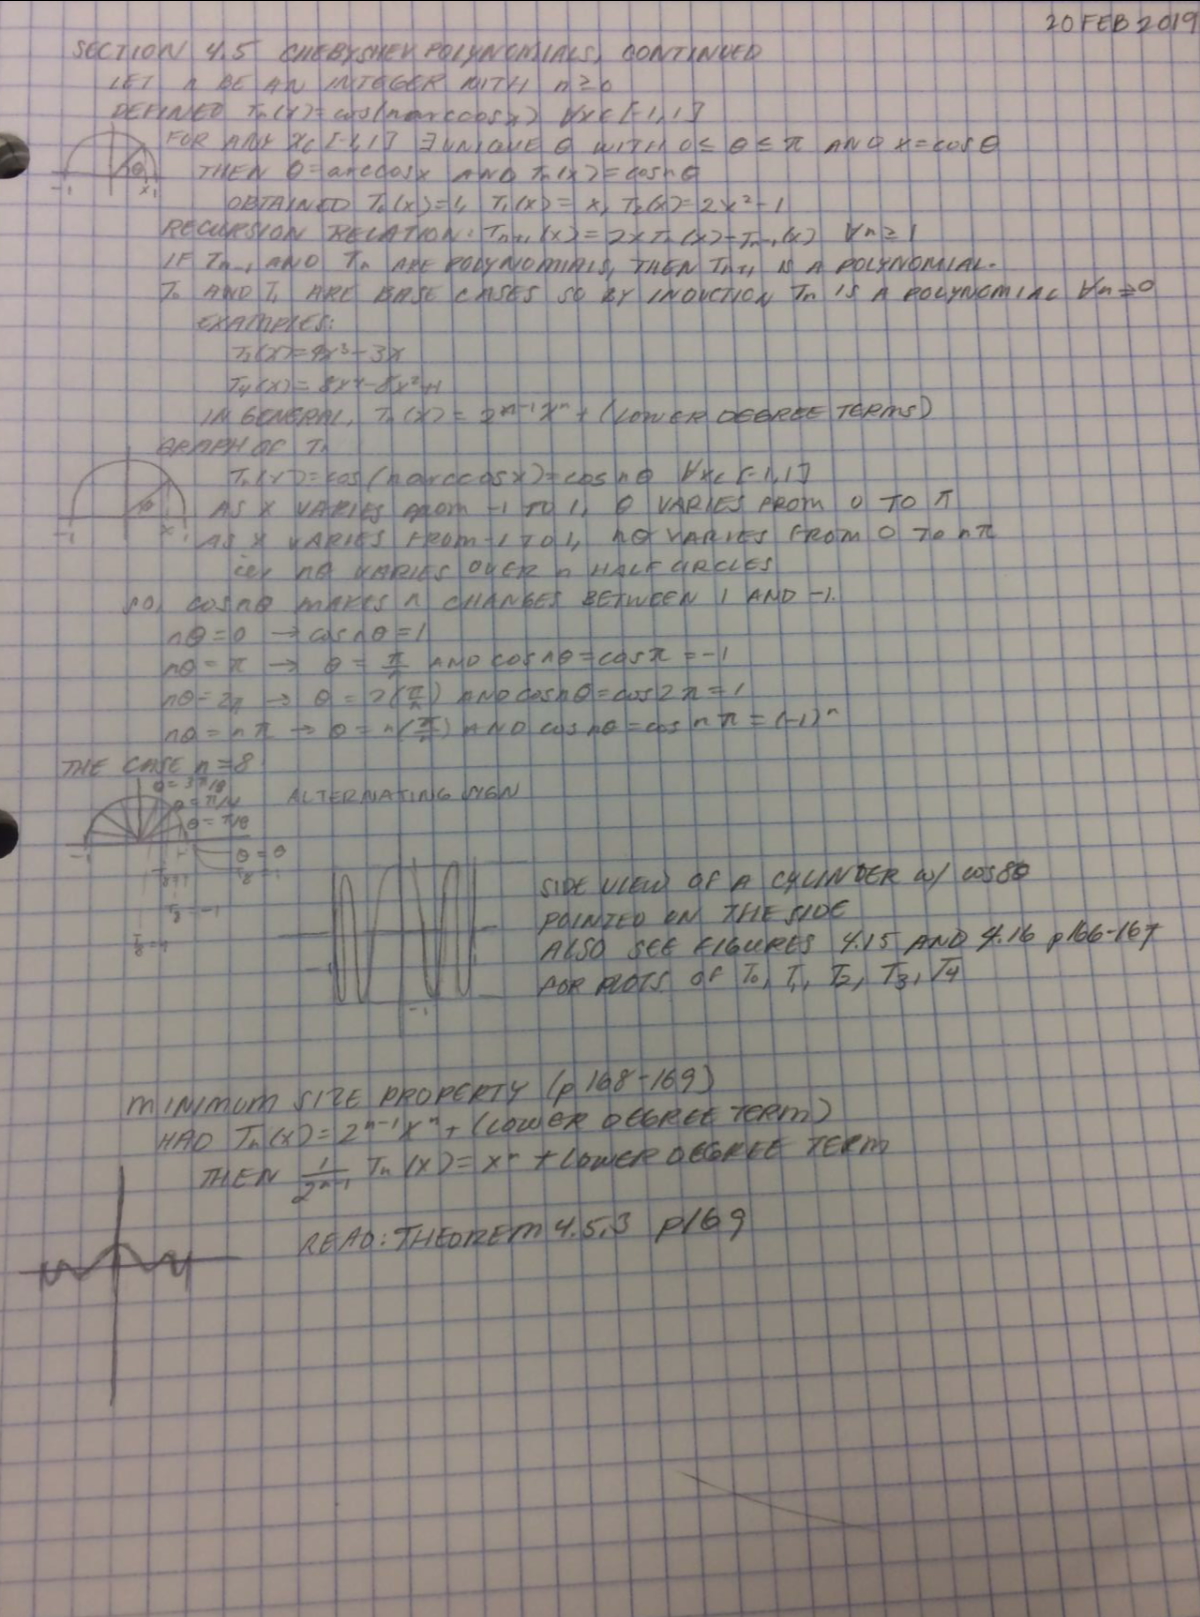 20 FEB 2019
SECTION 4.5 CHEBYSHEV POLYNOMIALS, CONTINUED
LET n BE AN INTEGER WITH n ≥ 0
DEFINED Tn(x) = cos(n arccos x) ∀x ∈ [-1,1]
FOR ANY x ∈ [-1,1] ∃ UNIQUE θ WITH 0 ≤ θ ≤ π AND x = cos θ
THEN θ = arccos x AND Tn(x) = cos nθ
-1 θ x 1
OBTAINED T₀(x) = 1, T₁(x) = x, T₂(x) = 2x² - 1
RECURSION RELATION: Tn+1(x) = 2xTn(x) - Tn-1(x) ∀n ≥ 1
IF Tn-1 AND Tn ARE POLYNOMIALS, THEN Tn+1 IS A POLYNOMIAL.
T₀ AND T₁ ARE BASE CASES SO BY INDUCTION Tn IS A POLYNOMIAL ∀n ≥ 0
EXAMPLES:
T₃(x) = 4x³ - 3x
T₄(x) = 8x⁴ - 8x² + 1
IN GENERAL, Tn(x) = 2ⁿ⁻¹xⁿ + (LOWER DEGREE TERMS)
GRAPH OF Tn
Tn(x) = cos(n arccos x) = cos nθ ∀x ∈ [-1,1]
AS x VARIES FROM -1 TO 1, θ VARIES FROM 0 TO π
-1 θ x 1
AS x VARIES FROM -1 TO 1, nθ VARIES FROM 0 TO nπ
ie, nθ VARIES OVER n HALF CIRCLES
SO, cos nθ MAKES n CHANGES BETWEEN 1 AND -1.
nθ = 0 → cos nθ = 1
nθ = π → θ = π/n AND cos nθ = cos π = -1
nθ = 2π → θ = 2(π/n) AND cos nθ = cos 2π = 1
nθ = nπ → θ = n(π/n) AND cos nθ = cos nπ = (-1)ⁿ
THE CASE n = 8
θ = 3π/8
θ = π/4
θ = π/8
ALTERNATING SIGN
-1
θ = 0
T₈ = 1
T₈ = -1
T₈ = 1
SIDE VIEW OF A CYLINDER w/ cos 8θ
POINTED ON THE SIDE
ALSO SEE FIGURES 4.15 AND 4.16 p166-167
FOR PLOTS OF T₀, T₁, T₂, T₃, T₄
-1
MINIMUM SIZE PROPERTY (p 168-169)
HAD Tn(x) = 2ⁿ⁻¹xⁿ + (LOWER DEGREE TERM)
THEN 1/2ⁿ⁻¹ Tn(x) = xⁿ + LOWER DEGREE TERM
READ: THEOREM 4.5.3 p169